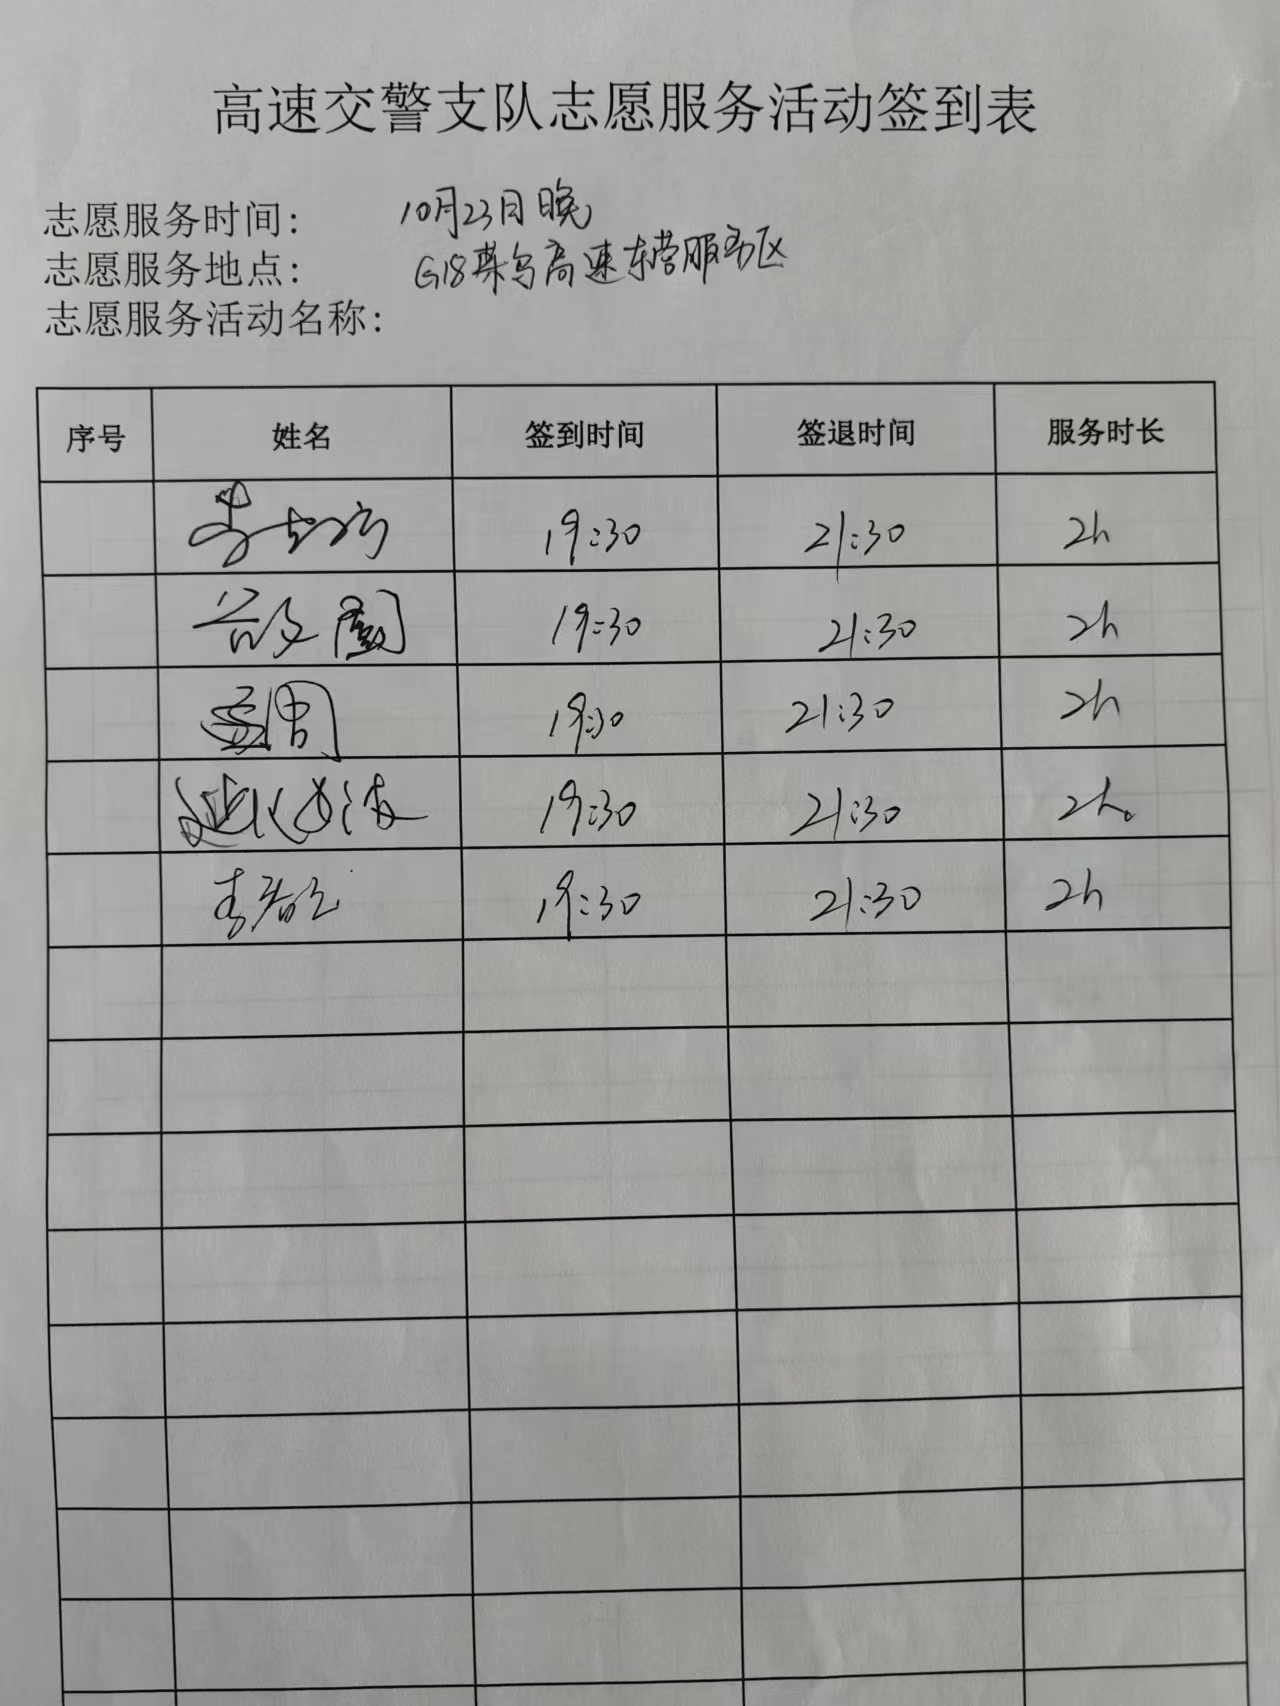 高速交警支队志愿服务活动签到表
志愿服务时间: 10月23日晚
志愿服务地点: G18荣乌高速东营服务区
志愿服务活动名称:
序号 姓名 签到时间 签退时间 服务时长
19:30 21:30 2h
19:30 21:30 2h
19:30 21:30 2h
19:30 21:30 2h
19:30 21:30 2h